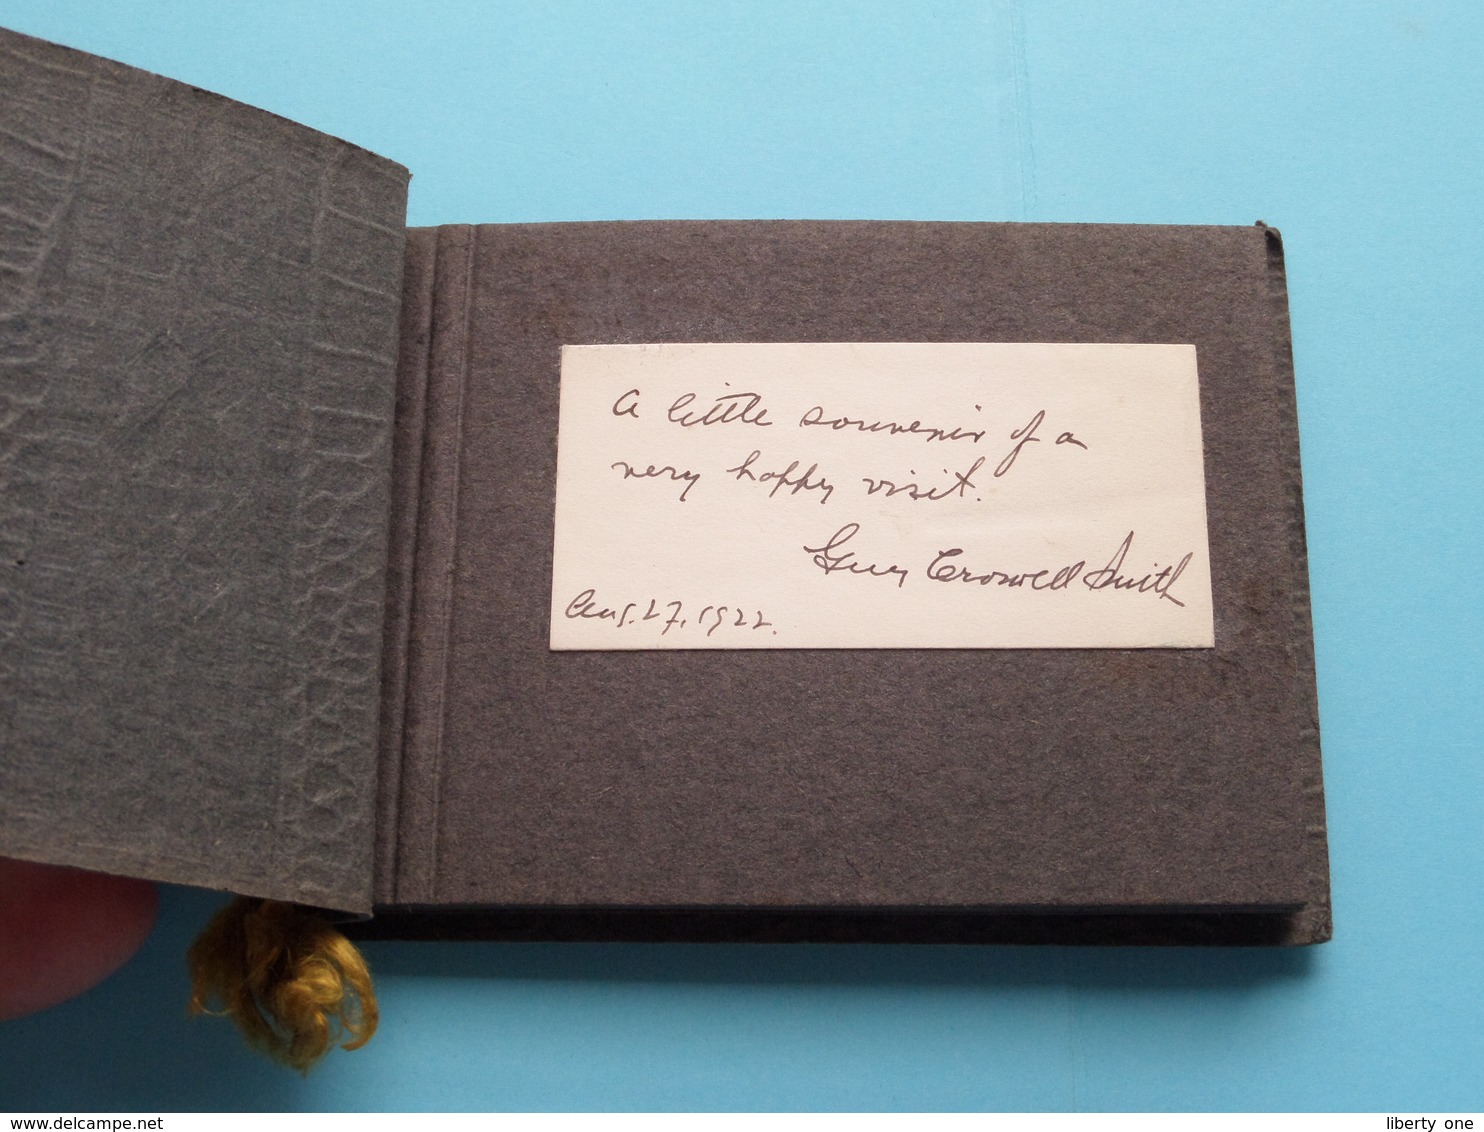 A little souvenir of a
very happy visit.
Guy Croswell Smith
Aug. 27, 1922.
www.delcampe.net
liberty one